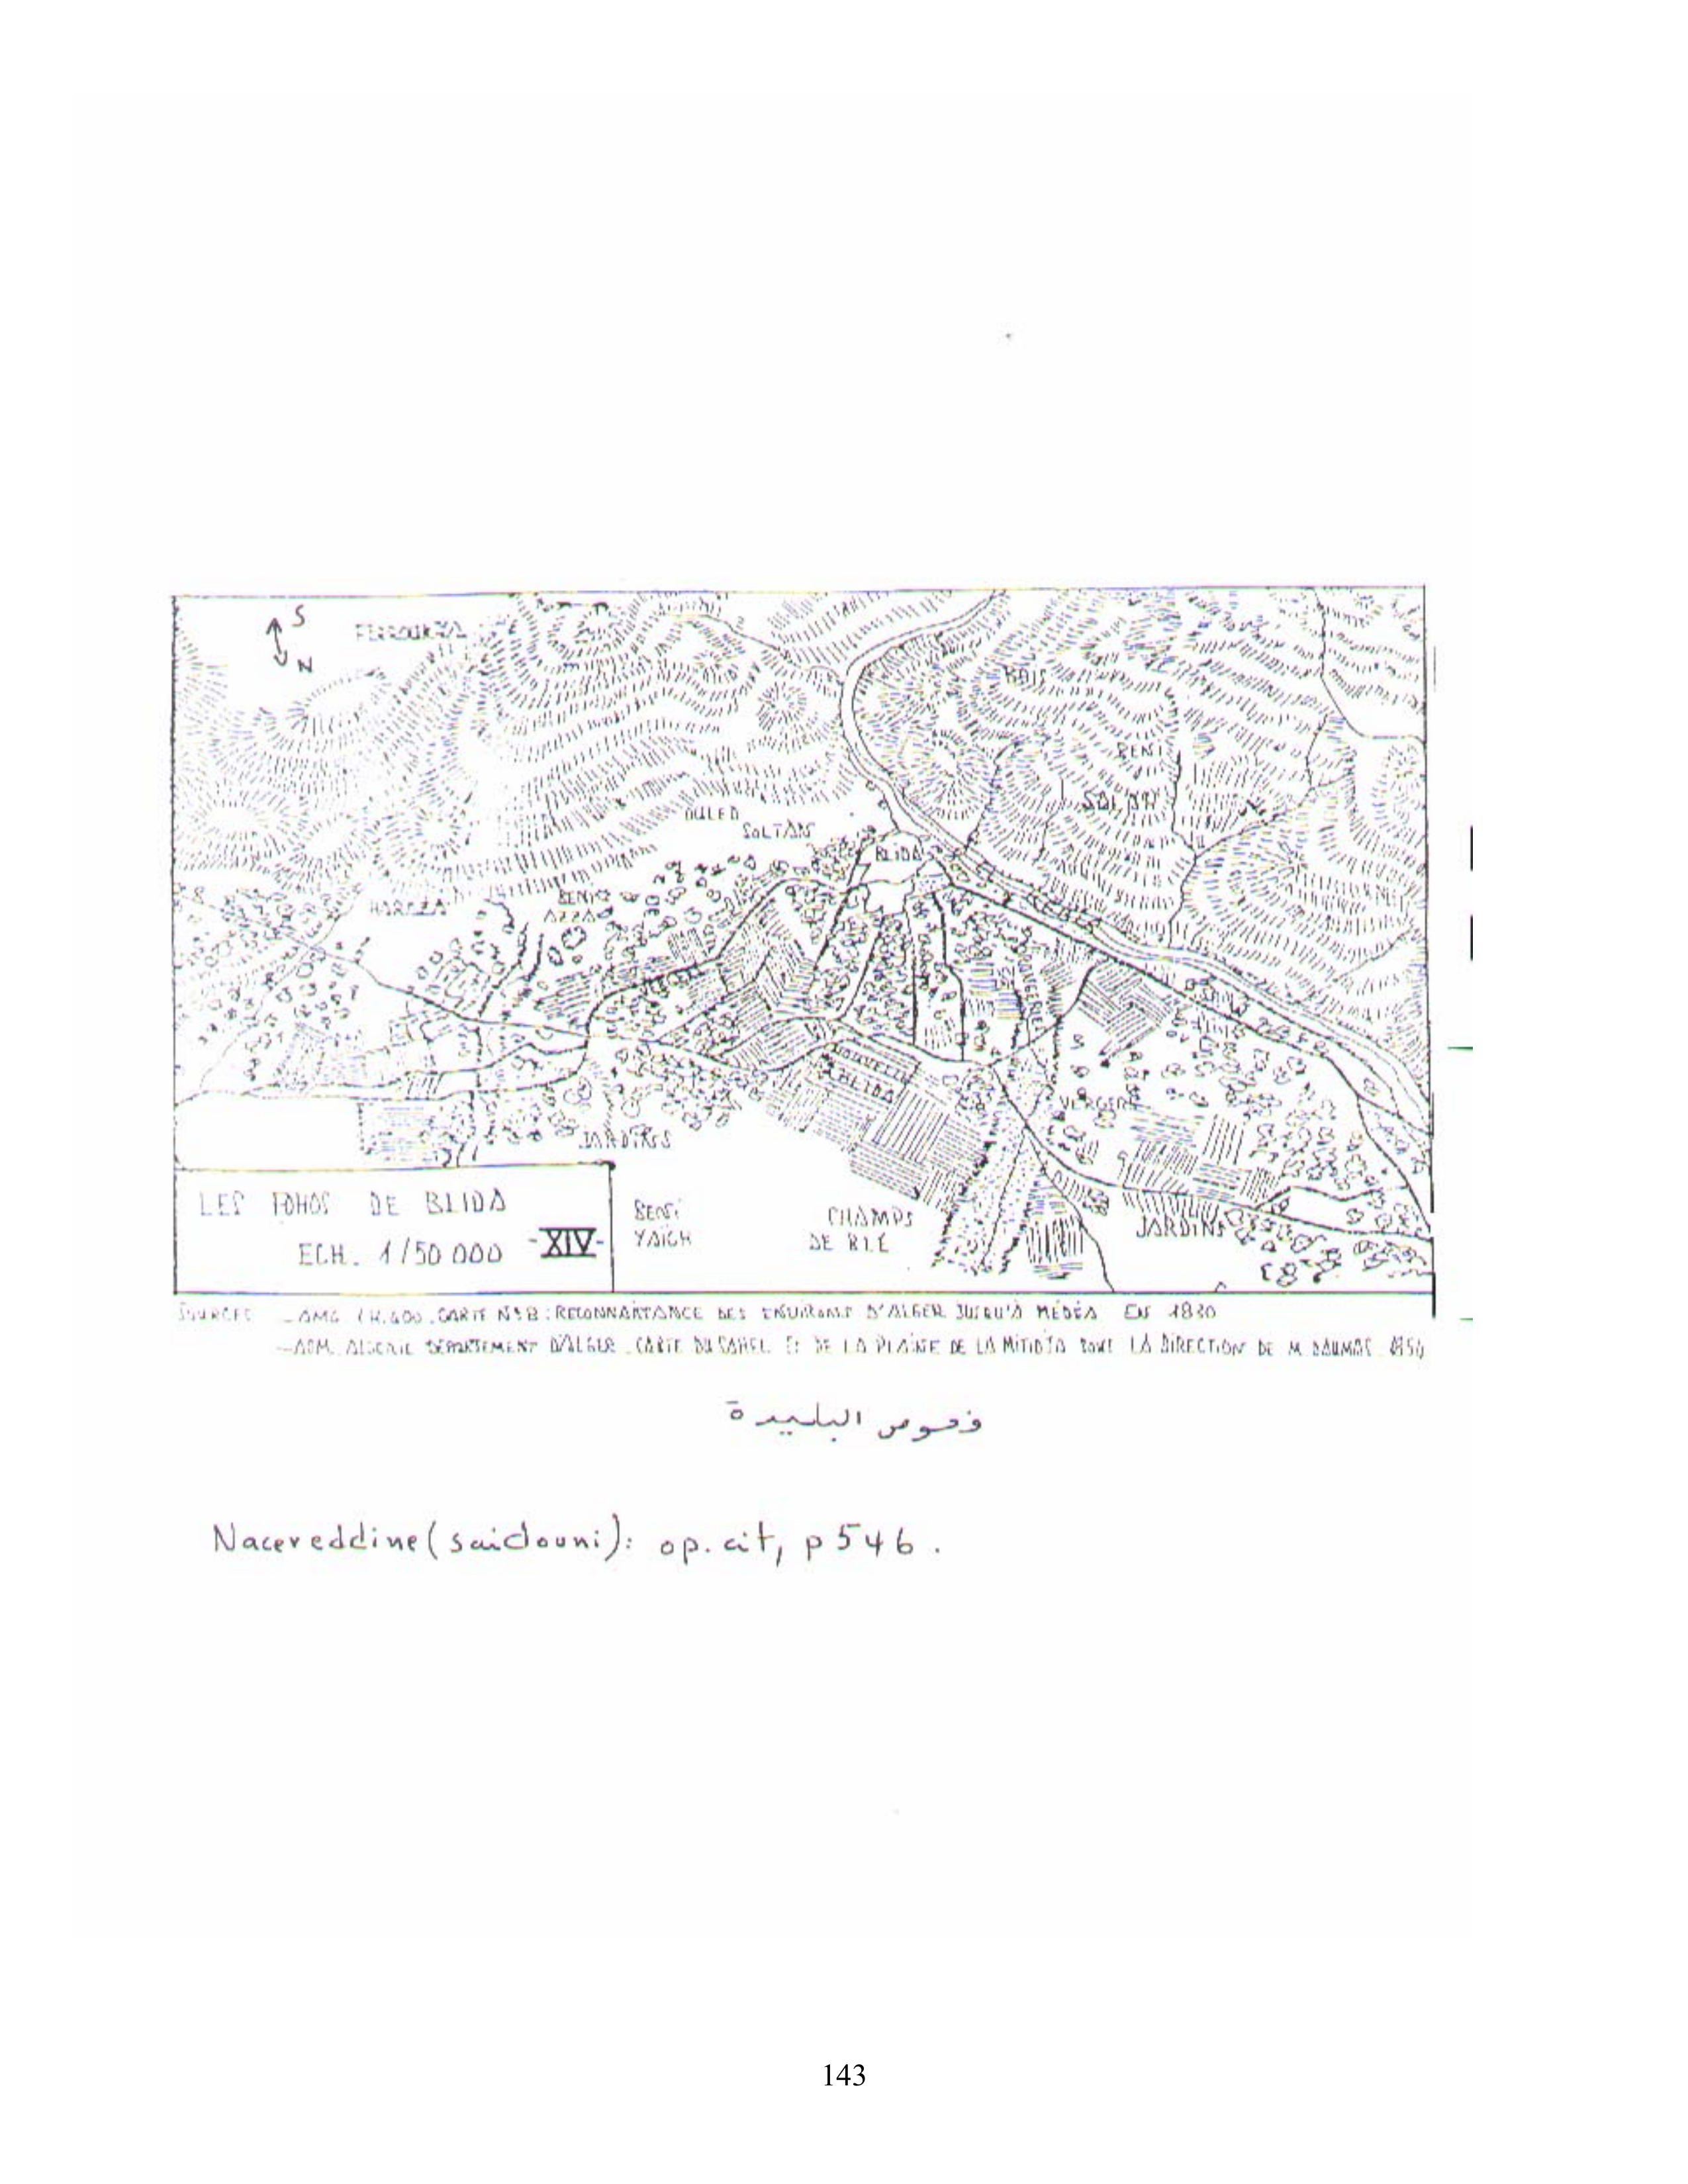 S
N
FERROUKHA
BOIS
BENI
SALAH
OULED
SOLTAN
BLIDA
BENI
AZZA
HAREZA
VERGERS
BLIDA
VERGERS
JARDINS
LES FOHOS DE BLIDA
ECH. 1/50 000 -XIV-
BENI
YAICH
CHAMPS
DE BLE
JARDINS
SOURCES - AMG CARTE N°8 : RECONNAISSANCE DES ENVIRONS D'ALGER JUSQU'À MÉDÉA EN 1830
- ADM. ALGERIE DEPARTEMENT D'ALGER. CARTE DU SAHEL ET DE LA PLAINE DE LA MITIDJA SOUS LA DIRECTION DE M. DAUMAS
فحوص البليدة
Nacereddine (saidouni): op. cit, p 546.
143